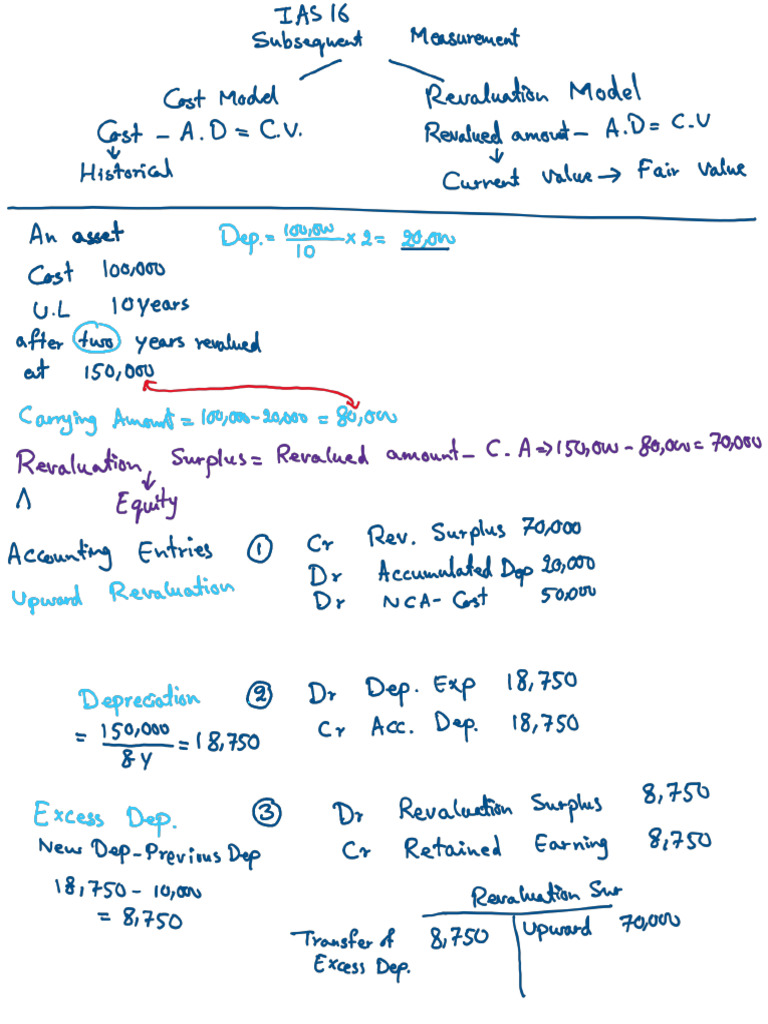 IAS 16
Subsequent Measurement
Cost Model
Cost - A.D = C.V.
Historical
Revaluation Model
Revalued amount - A.D = C.V
Current value → Fair value
An asset
Cost 100,000
U.L 10 years
after two years revalued
at 150,000
Dep. = 100,000/10 × 2 = 20,000
Carrying Amount = 100,000 - 20,000 = 80,000
Revaluation Surplus = Revalued amount - C.A ⇒ 150,000 - 80,000 = 70,000
Equity
Accounting Entries ① Cr Rev. Surplus 70,000
Upward Revaluation
Dr Accumulated Dep 20,000
Dr NCA - Cost 50,000
Depreciation ② Dr Dep. Exp 18,750
= 150,000/8 Y = 18,750
Cr Acc. Dep. 18,750
Excess Dep. ③ Dr Revaluation Surplus 8,750
New Dep - Previous Dep
Cr Retained Earning 8,750
18,750 - 10,000
= 8,750
Revaluation Sur
Transfer of 8,750
Excess Dep.
Upward 70,000